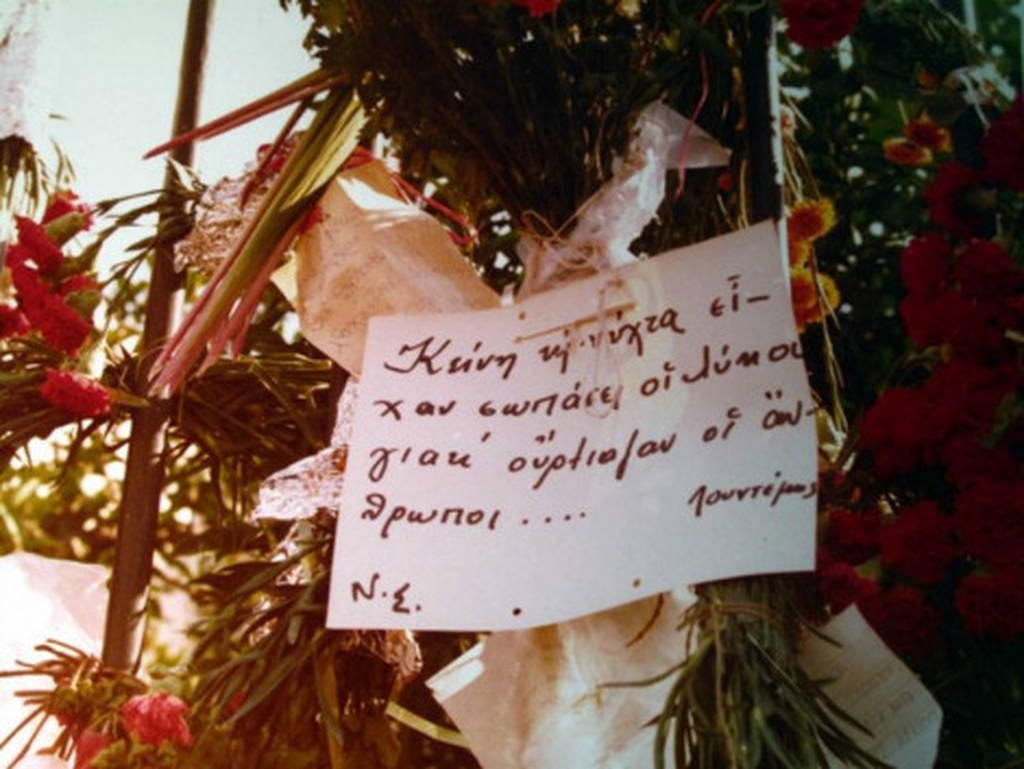 Κείνη τή νύχτα εἴ-
χαν σωπάσει οἵ λύκοι
γιατί οὔρλιαζαν οἵ ἄν-
θρωποι ....
Λουντέμης
Ν.Σ.